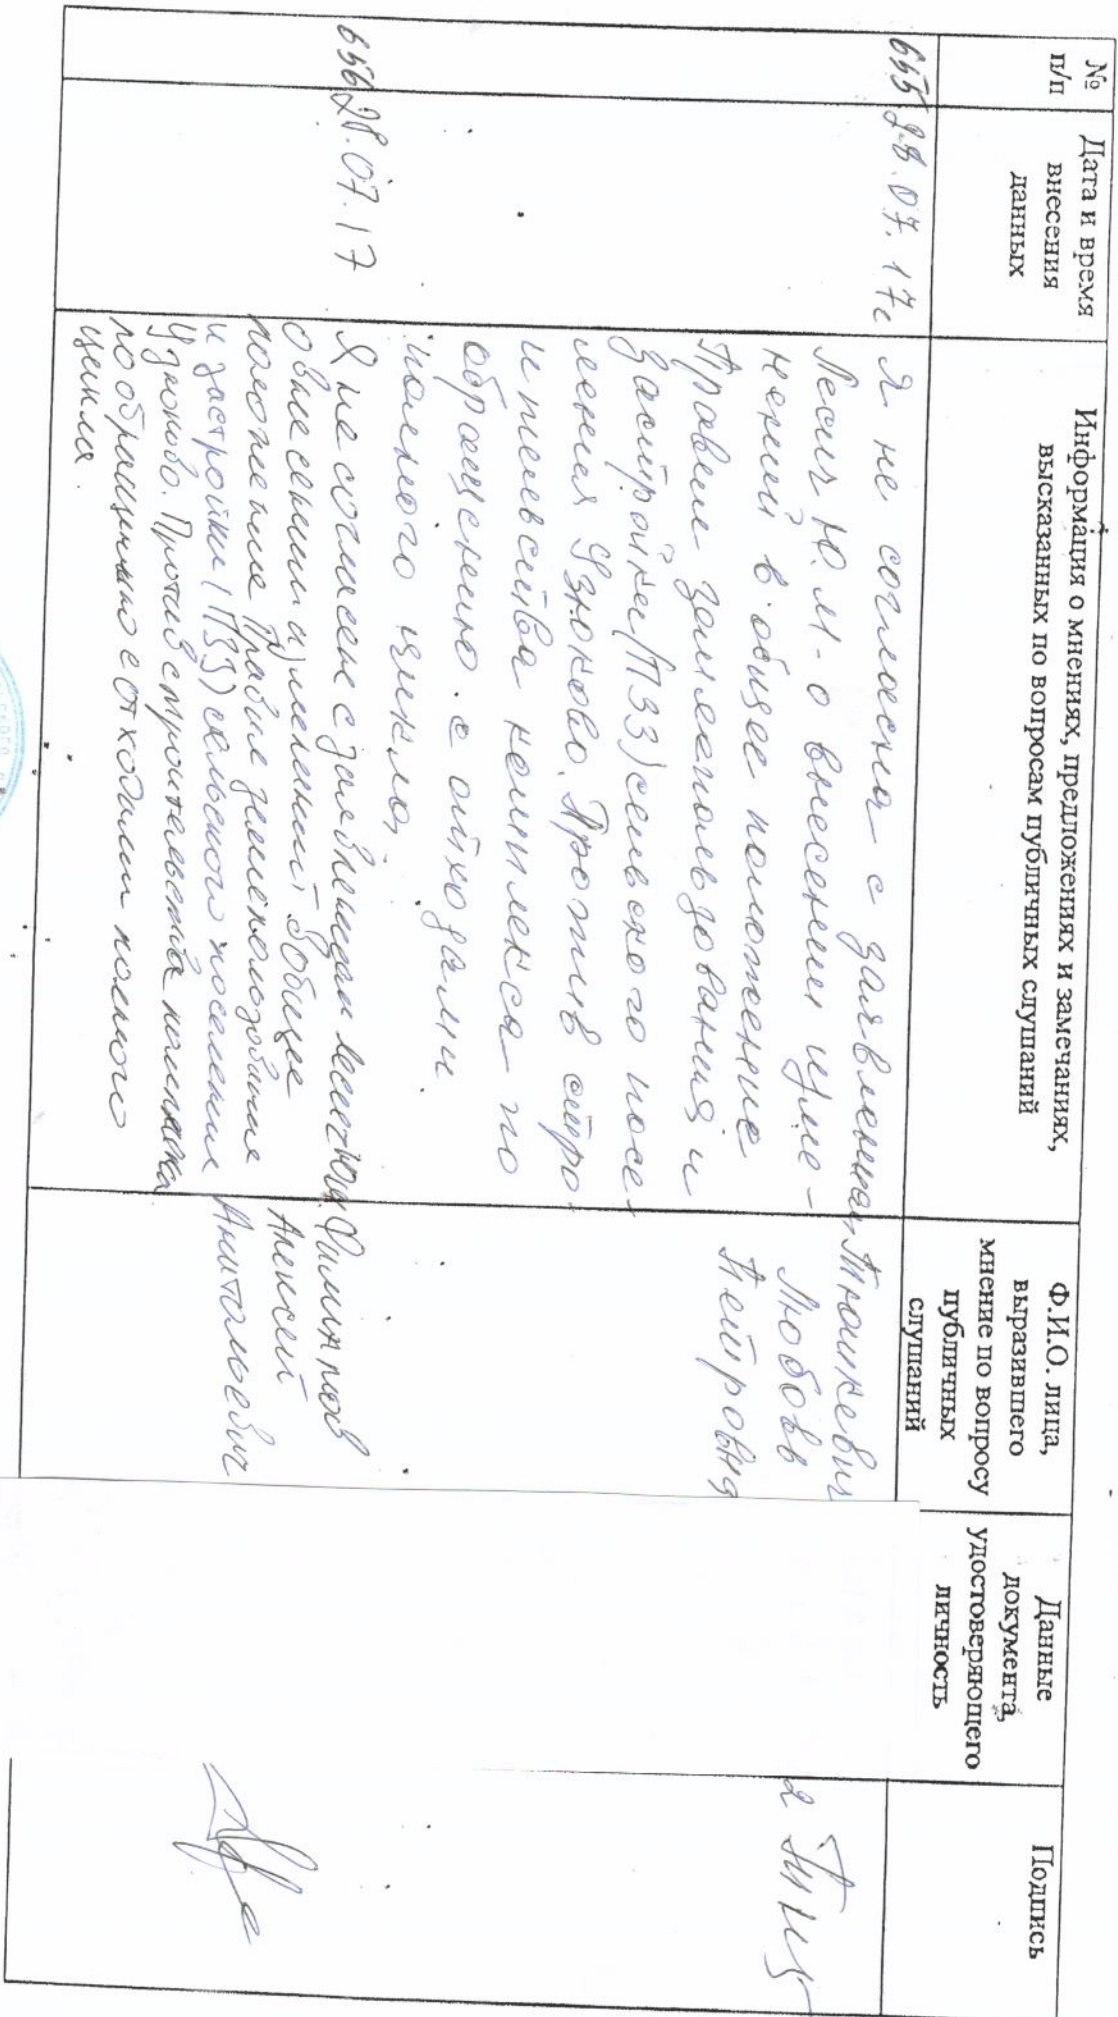 №
п/п
Дата и время
внесения
данных
Информация о мнениях, предложениях и замечаниях,
высказанных по вопросам публичных слушаний
Ф.И.О. лица,
выразившего
мнение по вопросу
публичных
слушаний
Данные
документа,
удостоверяющего
личность
Подпись
655
28.07.17г
Я не согласна с заявлением
Лесич Ю.М. о внесении изме-
нений в общее положение
Правил землепользования и
застройки (ПЗЗ) сельского посе-
ления Узюково. Против стро-
ительства комплекса по
обращению с отходами
полного цикла.
Любовь
Петровна
656
28.07.17
Я не согласен с заявлением
о внесении изменений в общее
положение Правил землепользования
и застройки (ПЗЗ) сельского поселения
Узюково. Против строительства комплекса
по обращению с отходами полного
цикла.
Филиппов
Алексей
Анатольевич